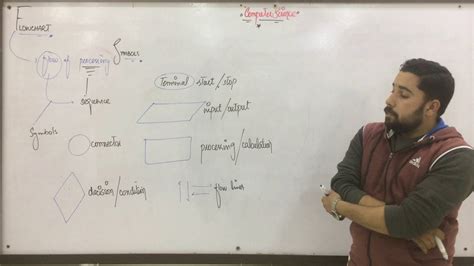 FLOWCHART
Computer Science
Symbols
flow of processing
sequence
Symbols
Terminal start / stop
input/output
connector
processing/calculation
decision/condition
flow lines
adidas